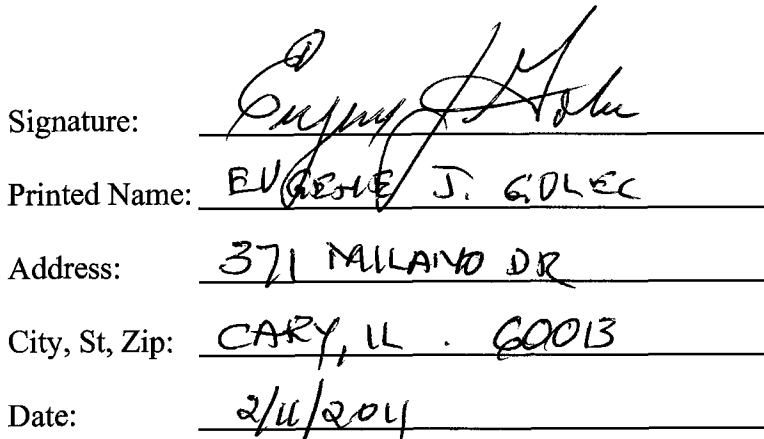 Signature: Eugene J. Golec
Printed Name: EUGENE J. GOLEC
Address: 371 MILANO DR
City, St, Zip: CARY, IL . 60013
Date: 2/11/2011